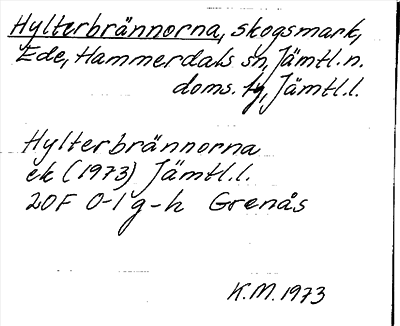 Hylterbrännorna, skogsmark,
Ede, Hammerdals sn, Jämtl. n.
doms. tg, Jämtl. l.
Hylterbrännorna
ek (1973) Jämtl. l.
20F 0-1 g-h Grenås
K.M. 1973